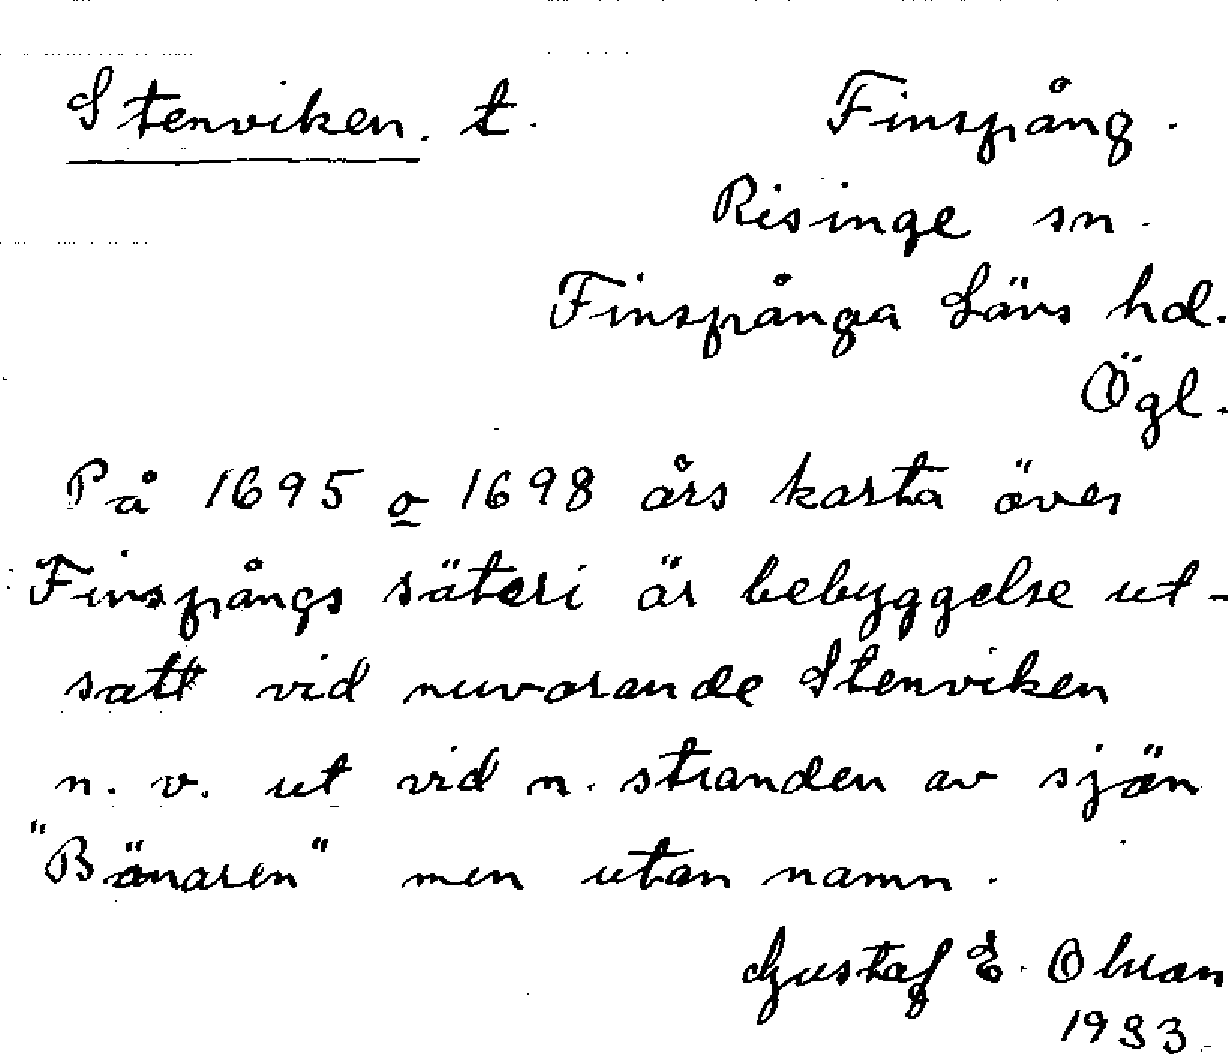 Stenviken. t.
Finspång.
Risinge sn.
Finspånga Läns hd.
Ögl.
På 1695 o 1698 års karta över
Finspångs säteri är bebyggelse ut-
satt vid nuvarande Stenviken
n. v. ut vid n. stranden av sjön
"Bönaren" men utan namn.
Gustaf E.
1933.